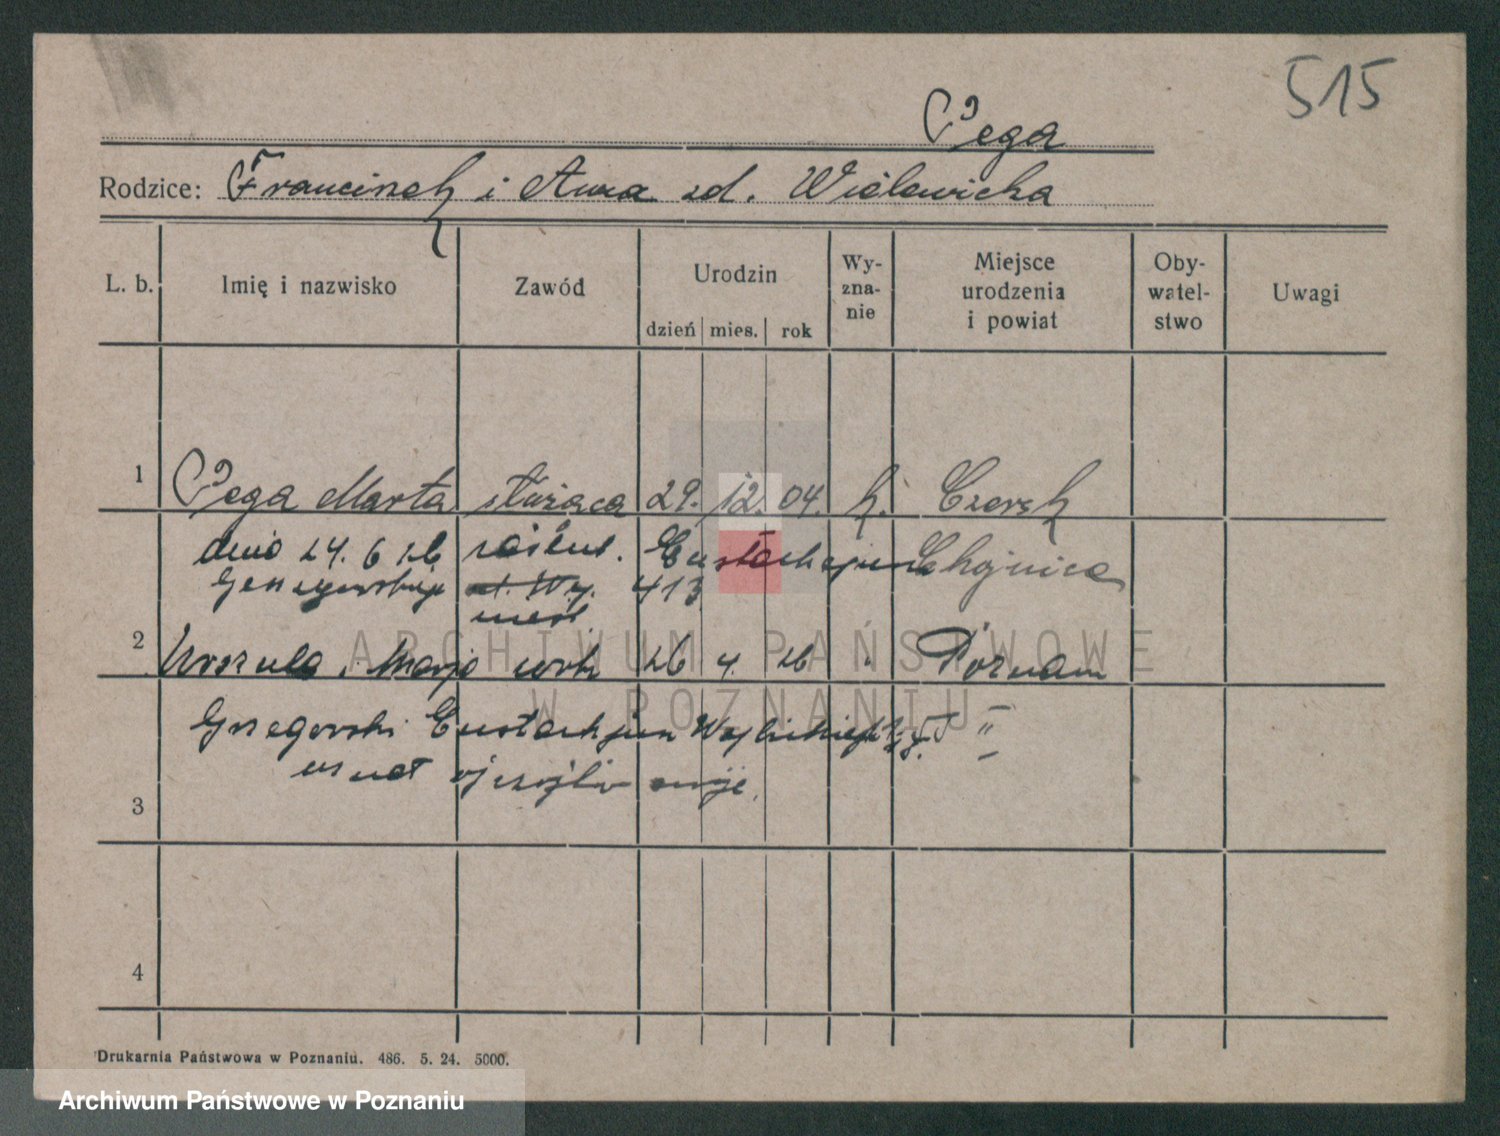 515
Pega
Rodzice: Franciszek i Anna zd. Wielewicka
L. b. Imię i nazwisko Zawód Urodzin dzień mies. rok Wy-zna-nie Miejsce urodzenia i powiat Oby-watel-stwo Uwagi
1 Pega Marta służąca 29. 12. 04. k. Czersk
dnia 24. 6 26 zaślub. Eustachejum Chojnice
413
2 Urszula Marja 26 4. 26 " Poznań
Grzegorski Eustachjusz "
uznał ojcostwo
3
4
Drukarnia Państwowa w Poznaniu. 486. 5. 24. 5000.
ARCHIWUM PAŃSTWOWE
W POZNANIU
Archiwum Państwowe w Poznaniu